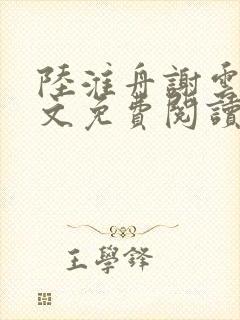 陸淮舟謝雲
文免費閱讀
王學鋒